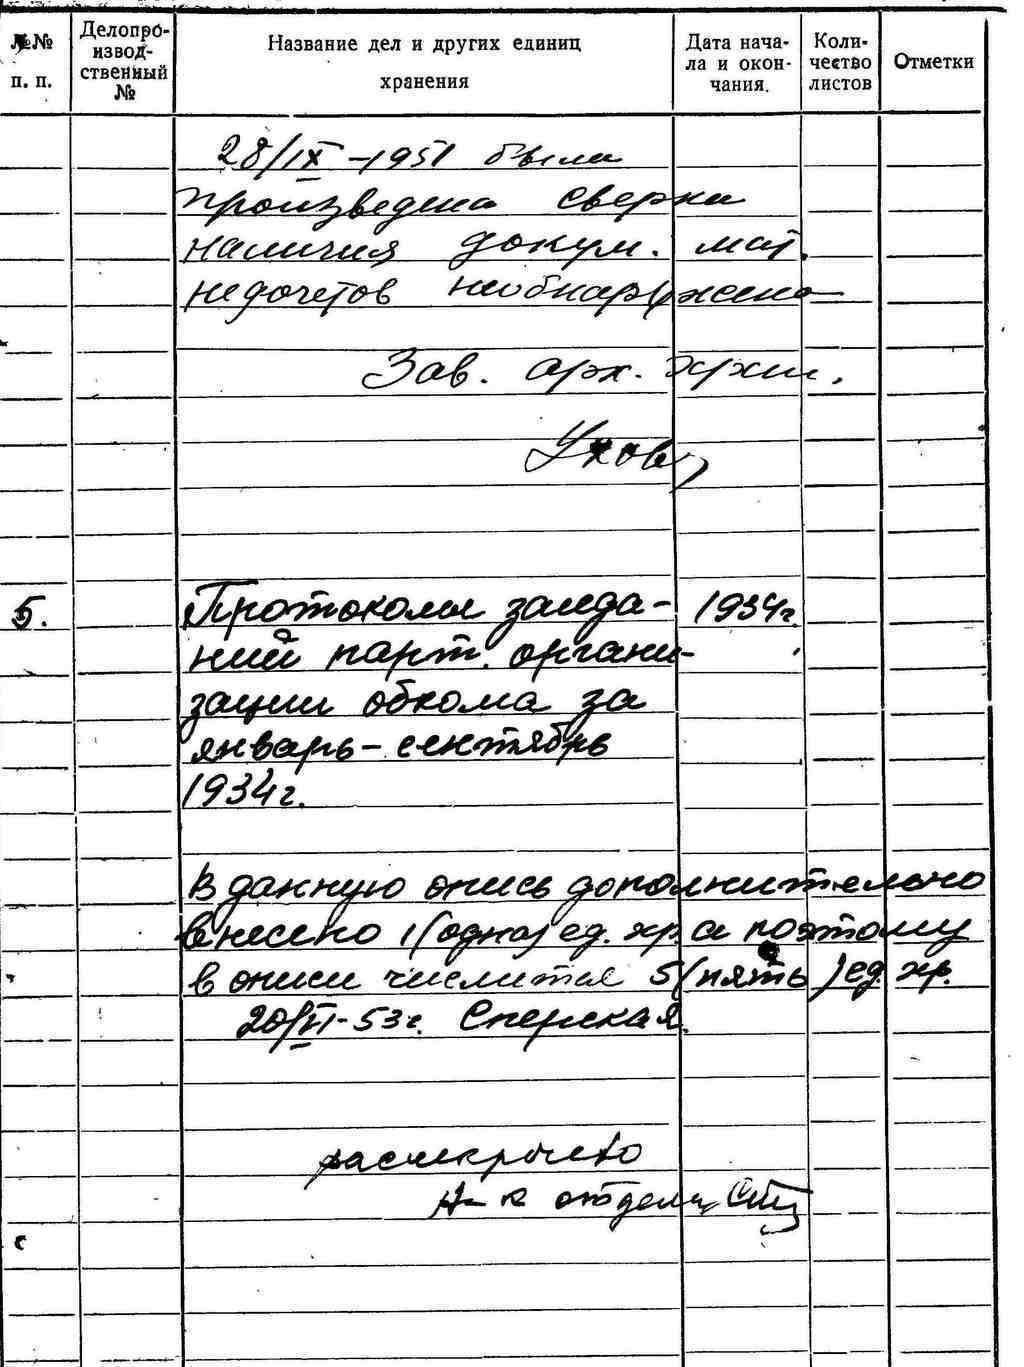 №№ п. п.
Делопро-
извод-
ственный
№
Название дел и других единиц
хранения
Дата нача-
ла и окон-
чания.
Коли-
чество
листов
Отметки
28/IX -1951 была
произведена сверка
наличия докум. мат.
недочетов необнаружено
Зав. арх. хран.
Ухов
5. Протоколы заседа- 1934г.
ний парт. органи-
зации обкома за
январь-сентябрь
1934г.
В данную опись дополнительно
внесено 1(одна) ед. хр. а поэтому
в описи числится 5(пять) ед. хр.
20/VI-53г.
рассекречено
н-к отдела